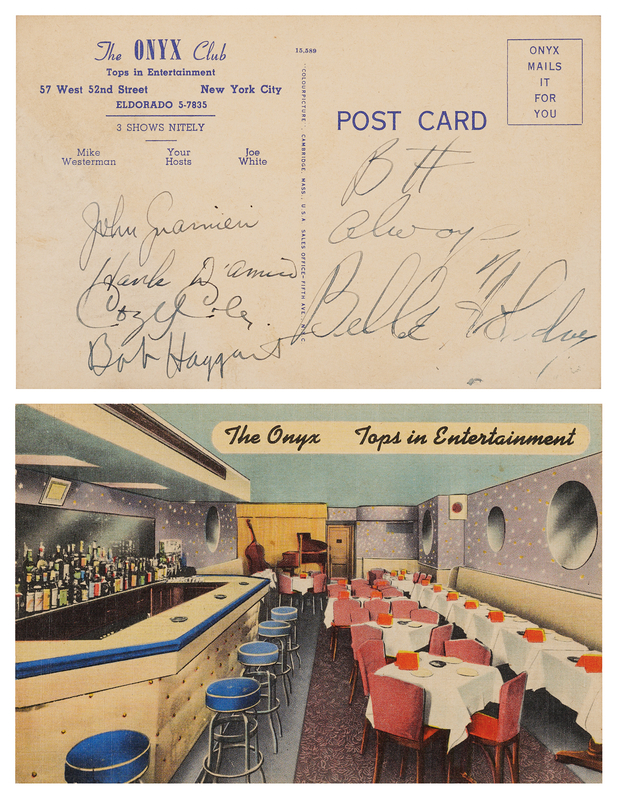 The ONYX Club
Tops in Entertainment
57 West 52nd Street New York City
ELDORADO 5-7835
3 SHOWS NITELY
Mike Westerman
Your Hosts
Joe White
John Guarnieri
Hank D'Amico
Cozy Cole
Bob Haggart
15,589
"COLOURPICTURE" CAMBRIDGE, MASS., U.S.A. SALES OFFICE—FIFTH AVE. N.Y.C.
POST CARD
ONYX
MAILS
IT
FOR
YOU
always
The Onyx Tops in Entertainment